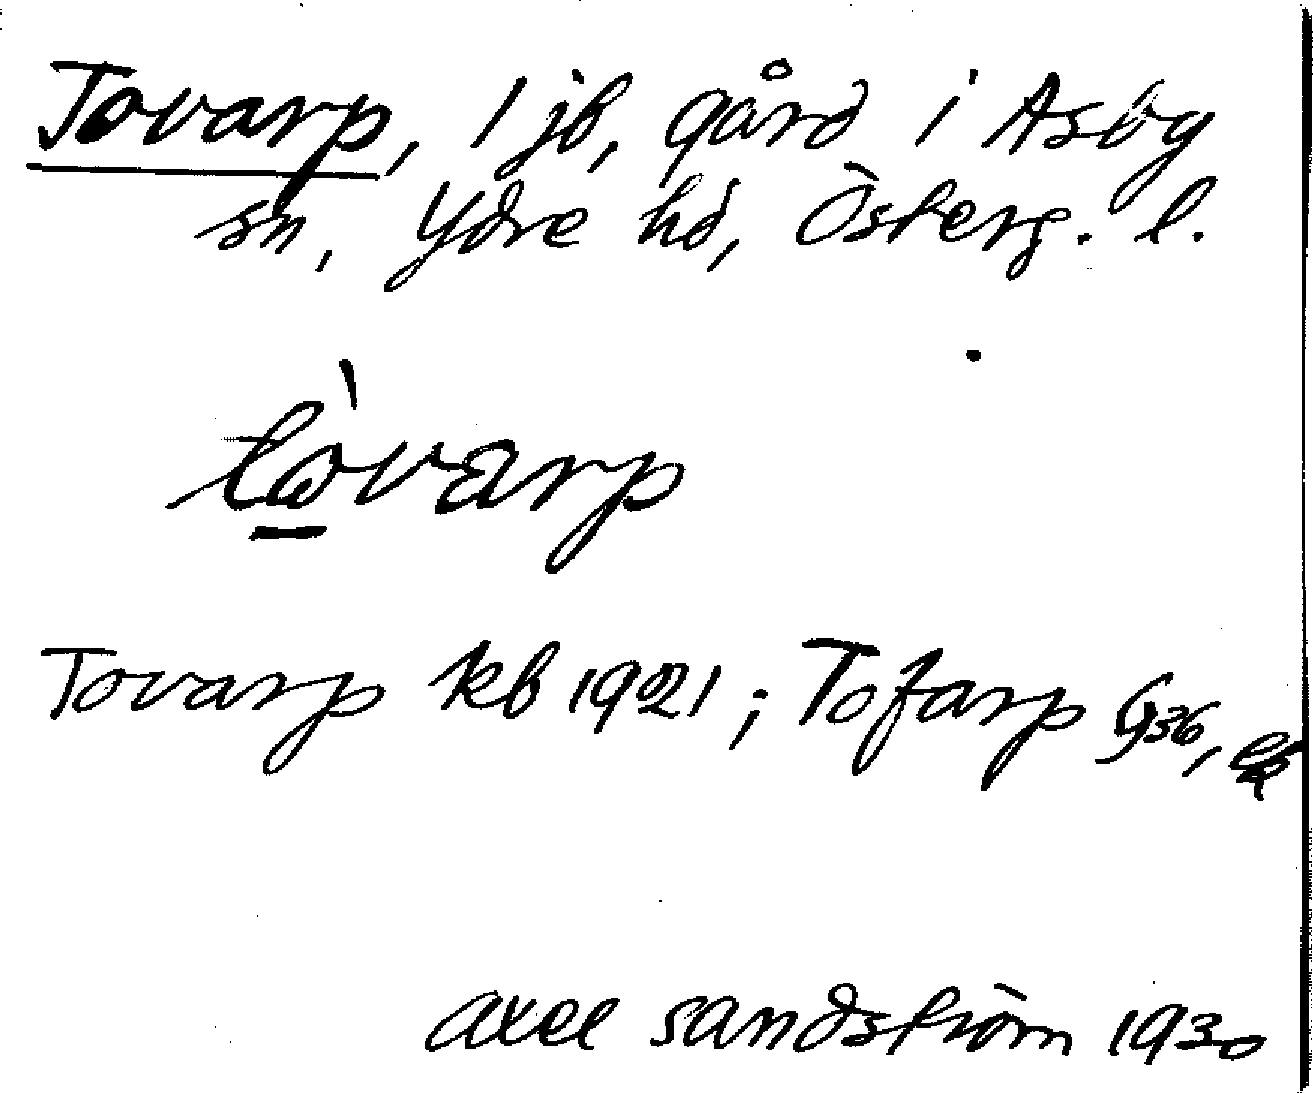 Tovarp, 1 jb, gård i Asby
sn, Ydre hd, Österg. l.
tòvarp
Tovarp kb 1921; Tofarp G36,
axel sandström 1930